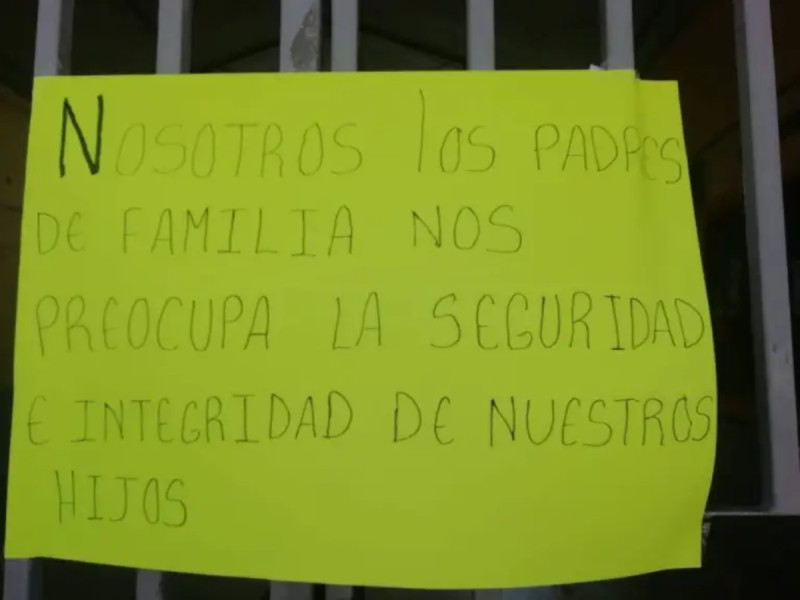 NOSOTROS los PADRES
DE FAMILIA NOS
PREOCUPA LA SEGURIDAD
E INTEGRIDAD DE NUESTROS
HIJOS